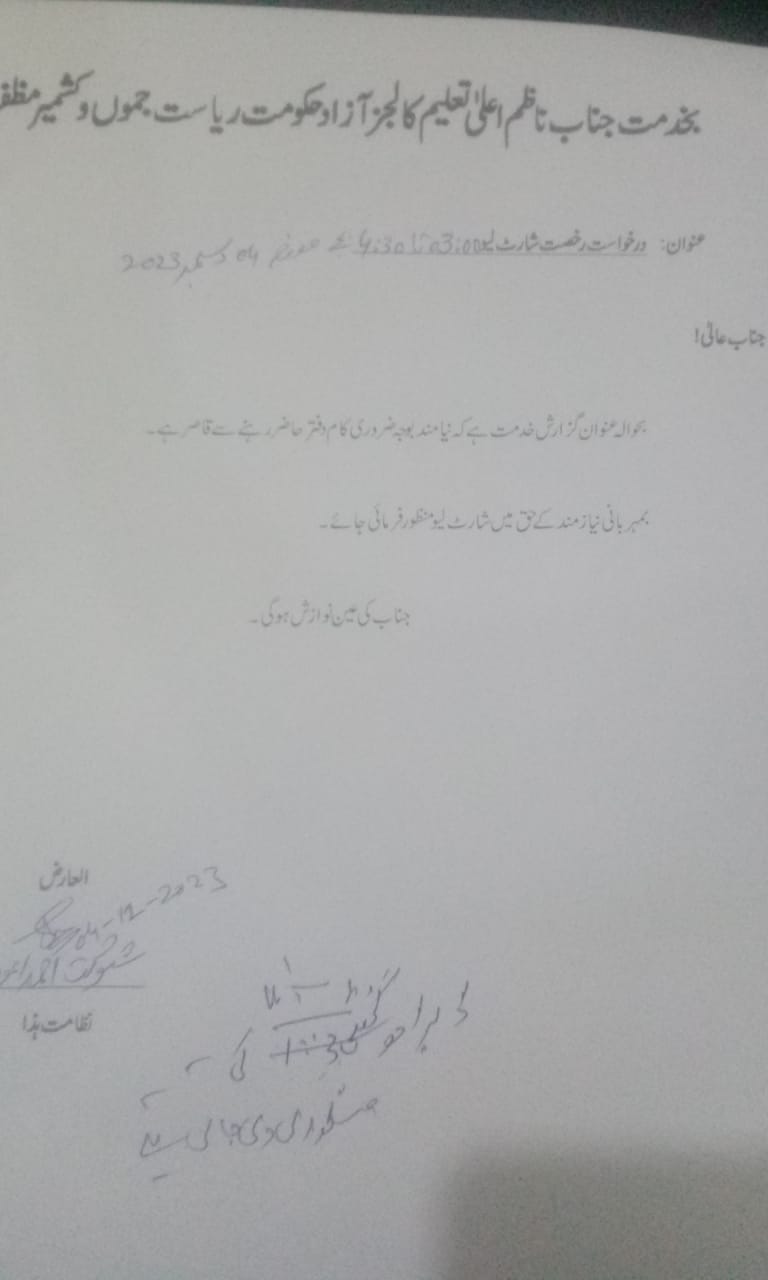 بخدمت جناب ناظم اعلیٰ تعلیم کالجز آزاد حکومت ریاست جموں و کشمیر مظفر
عنوان: درخواست رخصت شارٹ لیو 03:00 تا 4:30 بجے مورخہ 04 دسمبر 2023
جناب عالی!
بحوالہ عنوان گزارش خدمت ہے کہ نیامند بوجہ ضروری کام دفتر حاضر رہنے سے قاصر ہے۔
بمہربانی نیازمند کے حق میں شارٹ لیو منظور فرمائی جائے۔
جناب کی عین نوازش ہوگی۔
العارض
04-12-2023
شوکت احمد
نظامت ہذا
کی
منظوری دی جاتی ہے